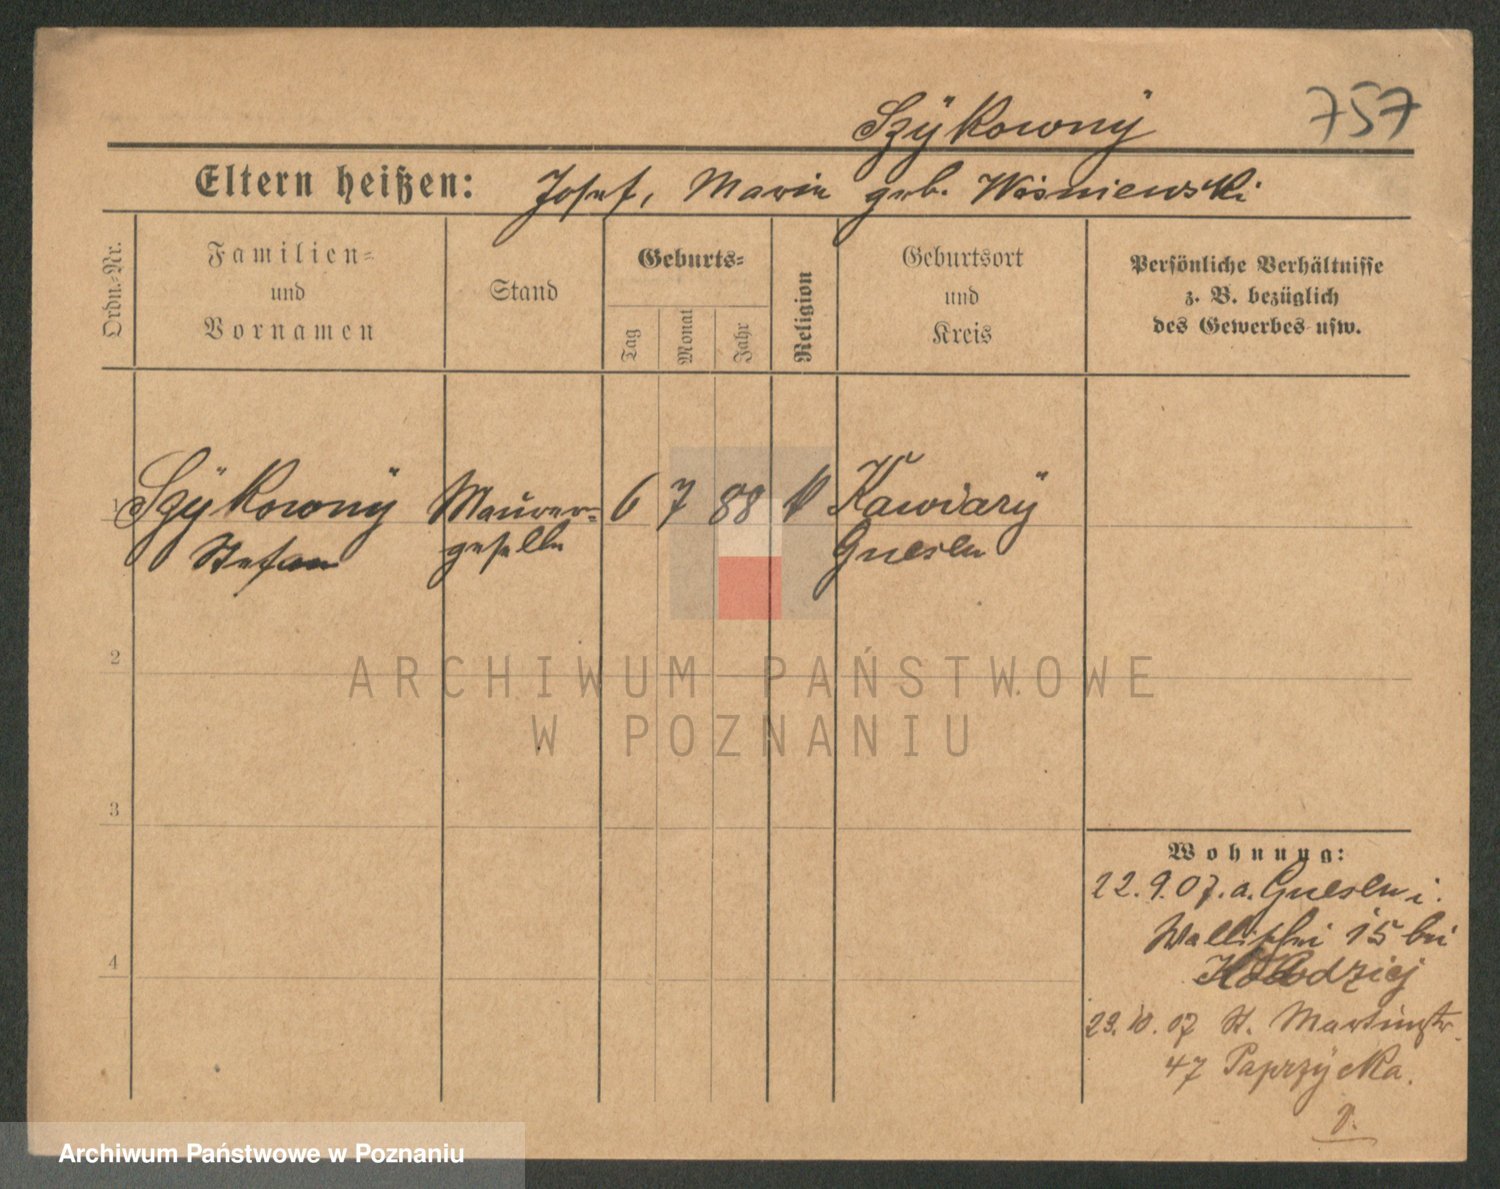 757
Szÿkownÿ
Eltern heißen: Josef, Marie geb. Wiśniewski
Ordn.-Nr.
Familien-
und
Vornamen
Stand
Geburts-
Tag
Monat
Jahr
Religion
Geburtsort
und
Kreis
Persönliche Verhältnisse
z. B. bezüglich
des Gewerbes usw.
1 Szÿkownÿ Maurer- 6 7 88 k Kawiarÿ
Stefan geselle Gnesen
2
3
4
Wohnung:
22.9.07. a. Gnesen i.
Wallischei 15 bei
Kołodziej
23.10.07 St. Martinstr.
47 Paprzÿcka.
ARCHIWUM PAŃSTWOWE
W POZNANIU
Archiwum Państwowe w Poznaniu